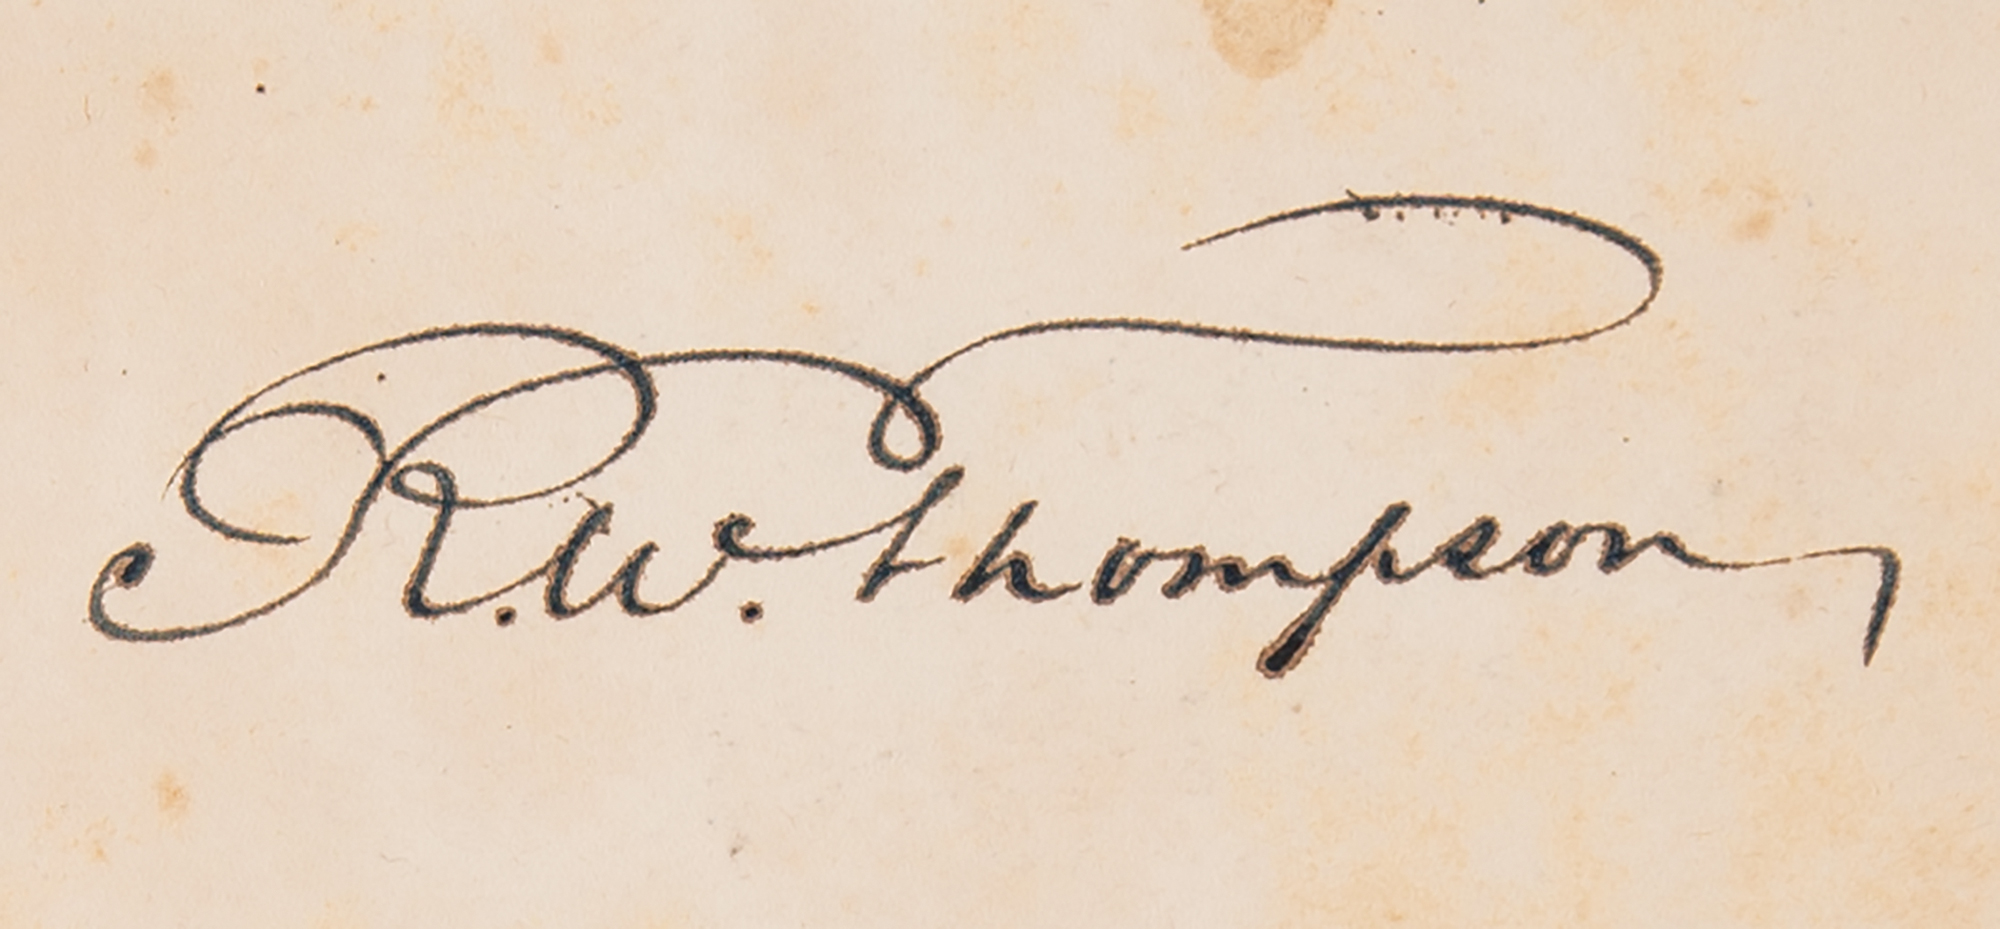 R. W. Thompson